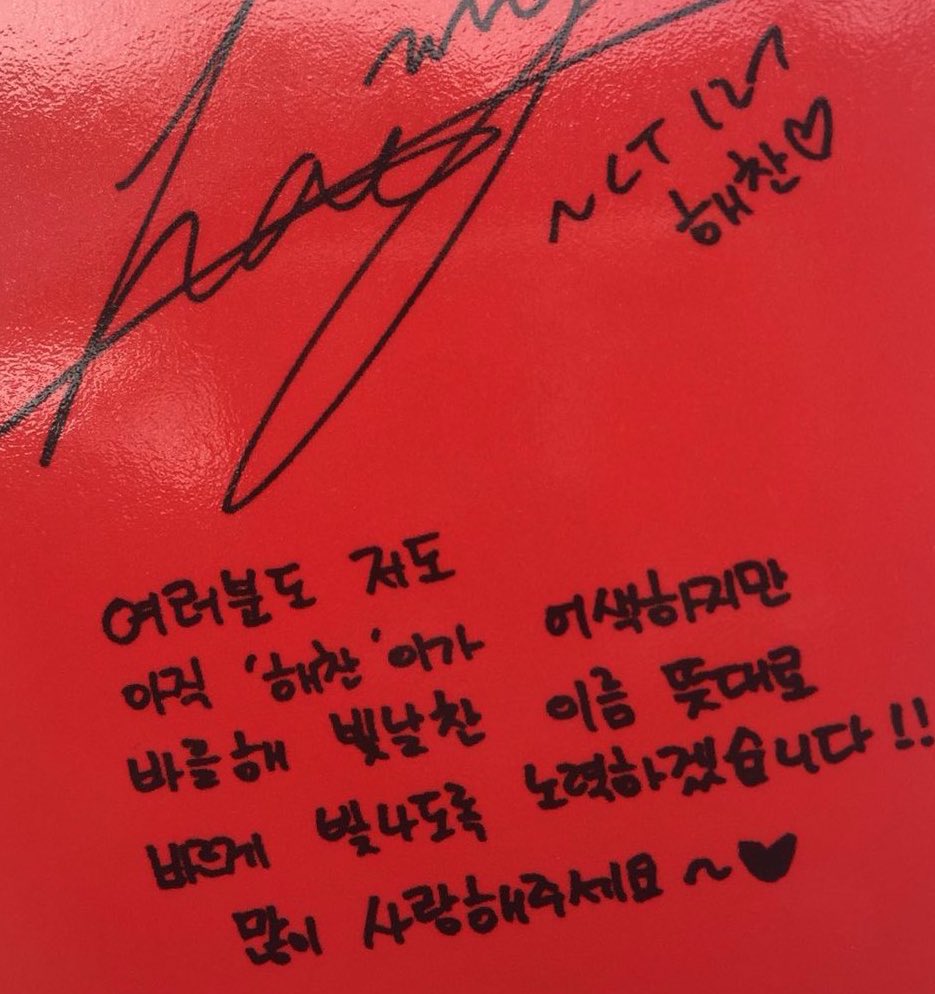 NCT 127
해찬♡
여러분도 저도
아직 '해찬'이가 어색하지만
바를해 빛날찬 이름 뜻대로
바르게 빛나도록 노력하겠습니다!!
많이 사랑해주세요~♥